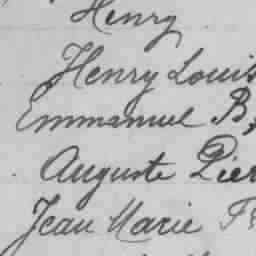 Henry
Henry Louis
Emmanuel B
Auguste Pier
Jean Marie F